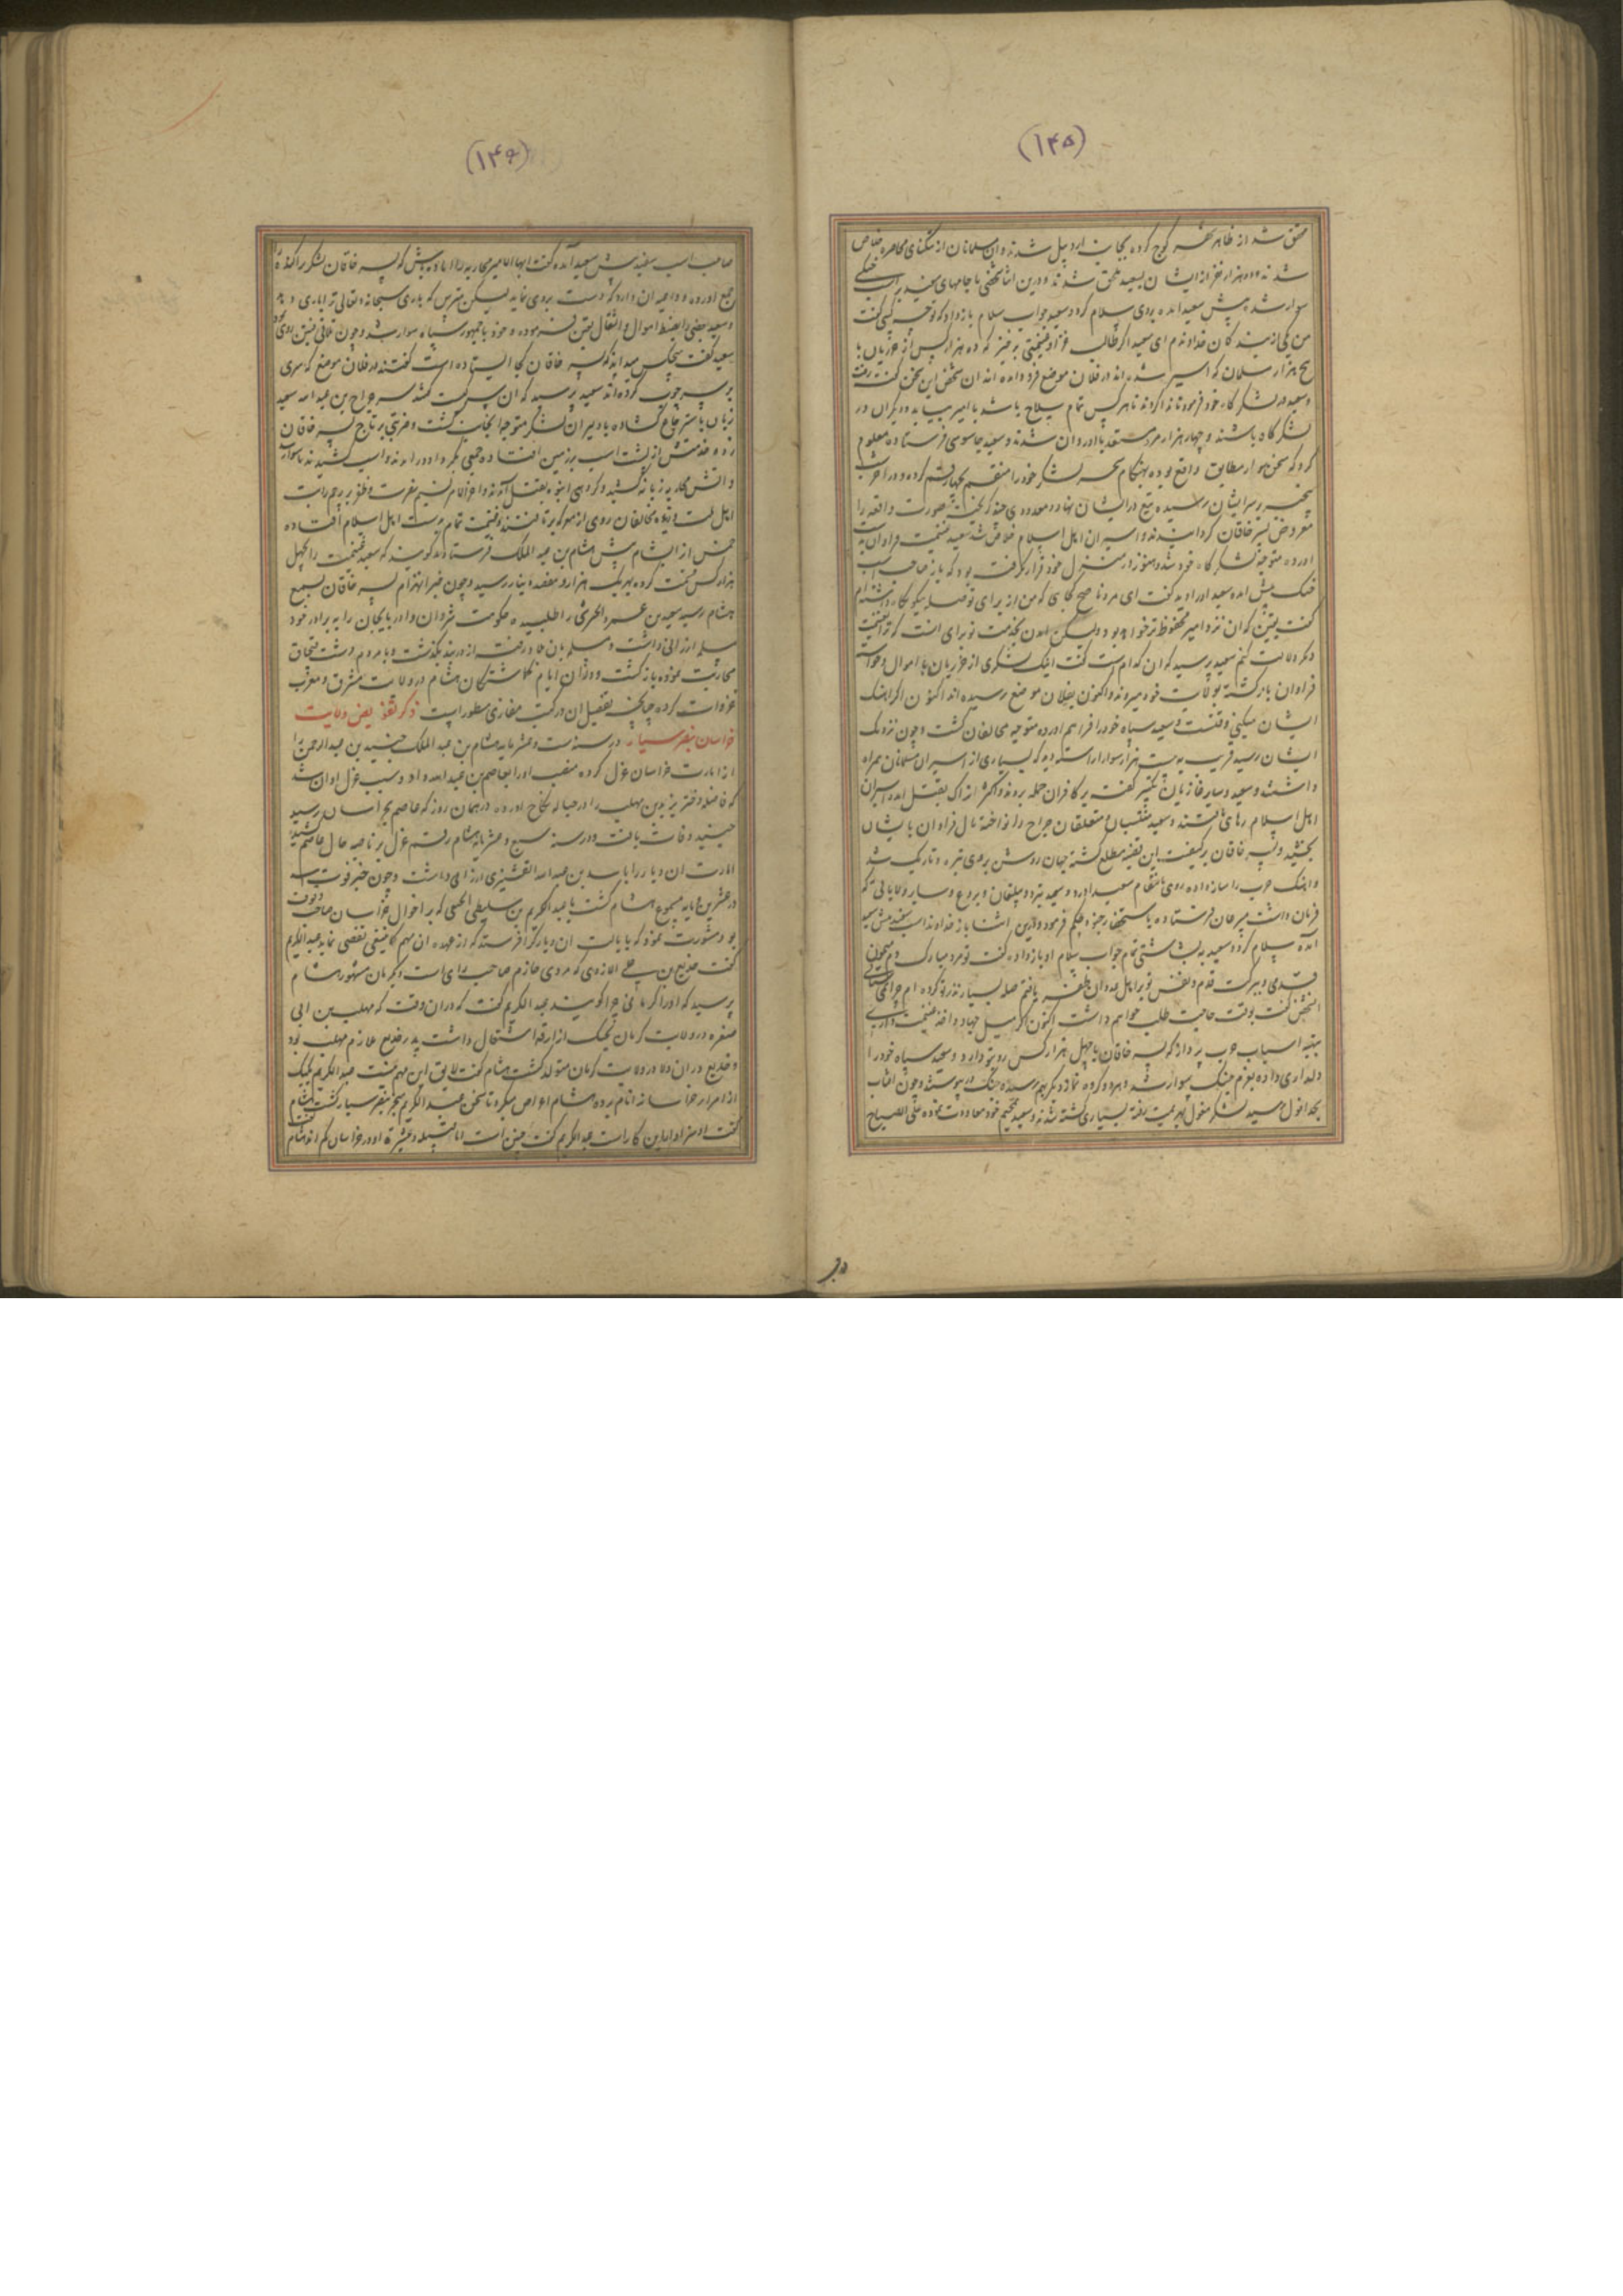 (۱۴۵)
محقق شد از ظاهر شهر کوچ کرده بجانب اردبیل شدند و ان مسلمانان از تنکنای محاصره خلاص
شدند و دو هزار نفر از ایشان بسعید ملحق شدند و درین اثنا شخصی با جامهای سفید بر اسب خنکی
سوار شده پیش سعید امده بروی سلام کرد و سعید جواب سلام باز داد که تو چه کسی کفت
من یکی از بندکان خداوندم ای سعید اکر طالب غزا و غنیمتی برخیز که ده هزار کس از خزریان با
پنج هزار مسلمان که اسیر شده اند در فلان موضع فرود امده اند ان شخص این سخن کفته رفت
و سعید در لشکرکاه خود فرمود تا ندا کردند تا هر کس تمام سلاح باشد با امیر بیاید و دیکران در
لشکرکاه باشند و چهار هزار مرد مستعد با او روان شدند و سعید جاسوسی فرستاده معلوم
کرد که سخن سوار مطابق واقع بوده بهنکام سحر لشکر خود را منقسم بچهار قسم کرده و در اخر شب
بیخبر بر سر ایشان رسیده تیغ در ایشان نهاد و معدودی چند کریخته صورت واقعه را
معروض پسر خاقان کردانیدند و اسیران اهل اسلام خلاص شد سعید غنیمت فراوان بدست
اورده متوجه لشکرکاه خود شد و هنوز در منزل خود قرار نکرفته بود که باز صاحب اسب
خنک پیش امده سعید او را دید کفت ای مرد ناصح کجایی که من از برای تو صله نیکو نکاه داشته ام
کفت یقین که ان نزد امیر محفوظ تر خواهد بود ولیکن امدن بخدمت تو برای انست که ترا بغنیمت
دیکر دلالت کنم سعید پرسید که ان کدام است کفت اینک لشکری از خزریان با اموال و خواسته
فراوان بازکشته بولایت خود میروند و اکنون بفلان موضع رسیده اند اکنون اکر اهنک
ایشان میکنی وقتست و سعید سپاه خود را فراهم اورده متوجه مخالفان کشت و چون نزدیک
ایشان رسید قریب به بیست هزار سوار اراسته دید که بسیاری از اسیران مسلمانان همراه
داشتند و سعید و سایر غازیان تکبیر کفته بر کافران حمله بردند و اکثر اتراک بقتل امد و اسیران
اهل اسلام رهایی یافتند و سعید منتسبان و متعلقان جراح را نواخته مال فراوان بایشان
بخشید و پسر خاقان بر کیفیت این قضیه مطلع کشته جهان روشن بروی تیره و تاریک شد
و اهنک حرب را ساز داده روی بانتقام سعید اورد و سعید ببرد و بیلقان و بردع و سایر ولایاتی که
فرمان داشت مبرعان فرستاده باستحضار حکم فرمود و درین اثنا باز خداوند اسب سفید پیش سعید
امده سلام کرد و سعید به بشاشتی تمام جواب سلام او باز داد و کفت تو مرد مبارک دم میمون
قدمی و ببرکت قدم و نفس تو بر اهل عدوان ظفر یافتم صله بسیار نذر تو کرده ام چرا نمی ستانی
انشخص کفت بوقت حاجت طلب خواهم داشت اکنون اکر میل جهاد و اخذ غنیمت داری
بتهیه اسباب حرب پرداز که پسر خاقان با چهل هزار کس رو بتو دارد و سعید سپاه خود را
دلداری داده بعزم جنک سوار شد و هر دو کروه نزدیک بهم رسیده جنک در پیوستند و چون افتاب
بحد افول رسید لشکر مغول بهزیمت رفته بسیاری کشته شدند و سعید بمخیم خود معاودت نموده علی الصباح
در
(۱۴۶)
صاحب اسب سفید پیش سعید آمده کفت ایها الامیر محاربه را اماده باش که پسر خاقان لشکر پراکنده
جمع اورده و داعیه ان دارد که دست بردی نماید لیکن مترس که باری سبحانه و تعالی ترا یاری دهد
و سعید بعضی را بضبط اموال و اثقال تعیین فرموده و خود با جمهور سپاه سوار شد و چون تلاقی فئتین روی داد
سعید کفت هیچکس میداند که پسر خاقان کجا ایستاده است کفتند در فلان موضع که سری
بر سر چوب کرده اند سعید پرسید که ان سر کیست کفتند سر جراح بن عبد الله سعید
زبان باسترجاع کشاده با دلیران لشکر متوجه انجانب کشت و ضربتی بر تاج پسر خاقان
زده و خدمتش از پشت اسب بر زمین افتاده جمعی بکرد او در امدند و اسب کشیدند تا سوار شد
و اتش محاربه زبانه کشید و کروهی انبوه بقتل آمدند و اخر الامر نسیم نصرت و ظفر بر پرچم رایت
اهل ملت وزیده مخالفان روی از معرکه برتافتند و غنیمت تمام بدست اهل اسلام افتاده
خمس از انهشام پیش هشام بن عبد الملک فرستادند کویند که سعید غنیمت را بچهل
هزار کس قسمت کرده بهر یک هزار و هفصد دینار رسید و چون خبر انهزام پسر خاقان بسمع
هشام رسید سعید بن عمرو الحرشی را طلبیده حکومت شروان و ادربایجان را به برادر خود
مسلمه ارزانی داشت و مسلمه بان حدود رفت از دربند بکذشت و با مردم دشت قبچاق
محاربت نموده بازکشت و در ان ایام کماشتکان هشام در ولایت مشرق و مغرب
غزوات کرده چنانچه تفصیل ان در کتب مغازی مسطور است ذکر تفویض ولایت
خراسان بنصر سیار در سنه ست و عشر مایه هشام بن عبد الملک جنید بن عبد الرحمن را
از امارت خراسان عزل کرده منصب او را بعاصم بن عبد الله داد و سبب عزل او ان شد
که فاضله دختر یزید بن مهلب را در حباله نکاح اورده در همان روز که عاصم بخراسان رسید
جنید وفات یافت و در سنه سبع و عشر مایه هشام رقم عزل بر ناصیه حال عاصم کشید
امارت ان دیار را باسد بن عبد الله القشیری ارزانی داشت و چون خبر فوت اسد
در عشرین و مایه مسموع هشام کشت با عبد الکریم بن سلیط الحنفی که بر احوال خراسان صاحب وقوف
بود مشورت نمود که بایالت ان دیار کرا فرستد که از عهده ان مهم کما ینبغی تفصی نماید عبد الکریم
کفت جدیع بن علی الازدی که مردی حازم صاحب رای است و بکرمان مشهور هشام
پرسید که او را کرمانی چرا کویند عبد الکریم کفت که در ان وقت که مهلب بن ابی
صفره در ولایت کرمان بجنک ازارقه اشتغال داشت پدر جدیع ملازم مهلب بود
و جدیع در ان ولا در ولایت کرمان متولد کشت هشام کفت لایق این مهم نیست عبد الکریم یک یک
از امرا خراسان را نام برده هشام اعراض میکرد تا سخن عبد الکریم منجر بنصر سیار کشت هشام
کفت او سزاوار این کار است عبد الکریم کفت چنین است اما قبیله و عشیره او در خراسان کم اند هشام
کفت